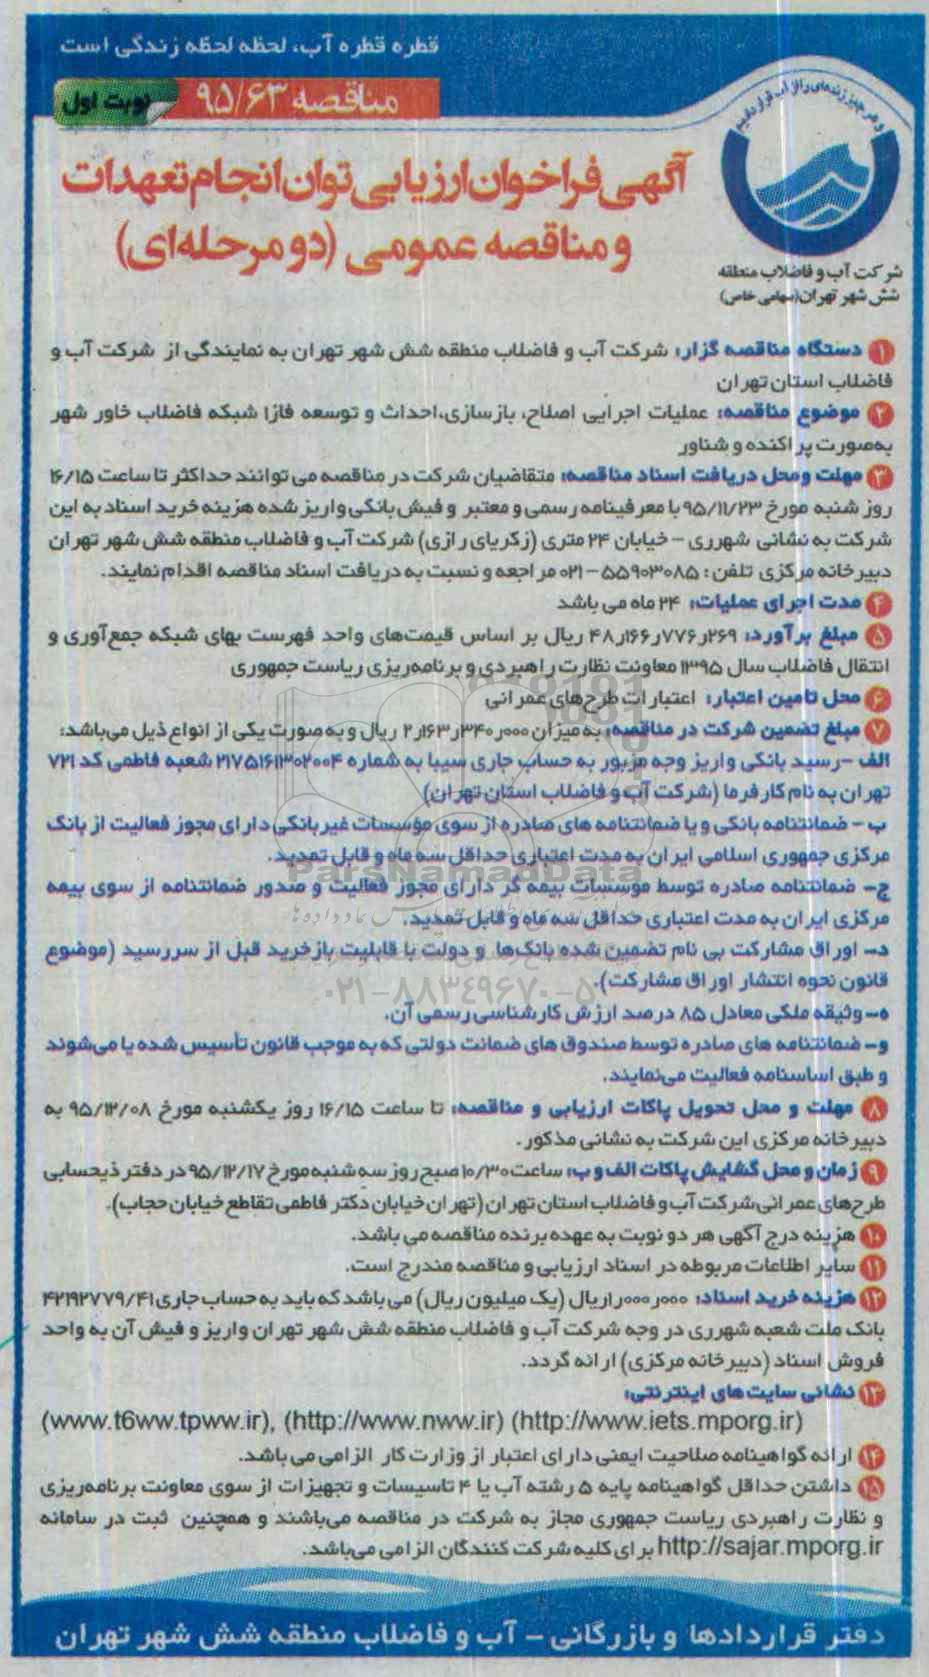 قطره قطره آب، لحظه لحظه زندگی است
مناقصه ۹۵/۶۳
نوبت اول
و هر چیز زنده‌ای را از آب قرار دادیم
آگهی فراخوان ارزیابی توان انجام تعهدات
و مناقصه عمومی (دو مرحله‌ای)
شرکت آب و فاضلاب منطقه
شش شهر تهران (سهامی خاص)
۱ دستگاه مناقصه گزار: شرکت آب و فاضلاب منطقه شش شهر تهران به نمایندگی از شرکت آب و
فاضلاب استان تهران
۲ موضوع مناقصه: عملیات اجرایی اصلاح، بازسازی،احداث و توسعه فاز۱ شبکه فاضلاب خاور شهر
به‌صورت پراکنده و شناور
۳ مهلت ومحل دریافت اسناد مناقصه: متقاضیان شرکت در مناقصه می توانند حداکثر تا ساعت ۱۶/۱۵
روز شنبه مورخ ۹۵/۱۱/۲۳ با معرفینامه رسمی و معتبر و فیش بانکی واریز شده هزینه خرید اسناد به این
شرکت به نشانی شهرری – خیابان ۲۴ متری (زکریای رازی) شرکت آب و فاضلاب منطقه شش شهر تهران
دبیرخانه مرکزی تلفن : ۵۵۹۰۳۰۸۵ – ۰۲۱ مراجعه و نسبت به دریافت اسناد مناقصه اقدام نمایند.
۴ مدت اجرای عملیات: ۲۴ ماه می باشد
۵ مبلغ برآورد: ۴۸٫۱۶۶٫۷۷۶٫۲۶۹ ریال بر اساس قیمت‌های واحد فهرست بهای شبکه جمع‌آوری و
انتقال فاضلاب سال ۱۳۹۵ معاونت نظارت راهبردی و برنامه‌ریزی ریاست جمهوری
۶ محل تامین اعتبار: اعتبارات طرح‌های عمرانی
۷ مبلغ تضمین شرکت در مناقصه: به میزان ۲٫۱۶۳٫۳۴۰٫۰۰۰ ریال و به صورت یکی از انواع ذیل می‌باشد:
الف –رسید بانکی واریز وجه مزبور به حساب جاری سیبا به شماره ۲۱۷۵۱۶۱۳۰۲۰۰۴ شعبه فاطمی کد ۷۲۱
تهران به نام کارفرما (شرکت آب و فاضلاب استان تهران)
ب – ضمانتنامه بانکی و یا ضمانتنامه های صادره از سوی مؤسسات غیربانکی دارای مجوز فعالیت از بانک
مرکزی جمهوری اسلامی ایران به مدت اعتباری حداقل سه ماه و قابل تمدید.
ج– ضمانتنامه صادره توسط موسسات بیمه گر دارای مجوز فعالیت و صدور ضمانتنامه از سوی بیمه
مرکزی ایران به مدت اعتباری حداقل سه ماه و قابل تمدید.
د– اوراق مشارکت بی نام تضمین شده بانک‌ها و دولت با قابلیت بازخرید قبل از سررسید (موضوع
قانون نحوه انتشار اوراق مشارکت).
ه– وثیقه ملکی معادل ۸۵ درصد ارزش کارشناسی رسمی آن.
و– ضمانتنامه های صادره توسط صندوق های ضمانت دولتی که به موجب قانون تأسیس شده یا می‌شوند
و طبق اساسنامه فعالیت می‌نمایند.
۸ مهلت و محل تحویل پاکات ارزیابی و مناقصه: تا ساعت ۱۶/۱۵ روز یکشنبه مورخ ۹۵/۱۲/۰۸ به
دبیرخانه مرکزی این شرکت به نشانی مذکور.
۹ زمان و محل گشایش پاکات الف و ب: ساعت ۱۰/۳۰ صبح روز سه شنبه مورخ ۹۵/۱۲/۱۷ در دفتر ذیحسابی
طرح‌های عمرانی شرکت آب و فاضلاب استان تهران (تهران خیابان دکتر فاطمی تقاطع خیابان حجاب).
۱۰ هزینه درج آگهی هر دو نوبت به عهده برنده مناقصه می باشد.
۱۱ سایر اطلاعات مربوطه در اسناد ارزیابی و مناقصه مندرج است.
۱۲ هزینه خرید اسناد: ۱٫۰۰۰٫۰۰۰ ریال (یک میلیون ریال) می باشد که باید به حساب جاری ۴۲۱۹۲۷۷۹/۴۱
بانک ملت شعبه شهرری در وجه شرکت آب و فاضلاب منطقه شش شهر تهران واریز و فیش آن به واحد
فروش اسناد (دبیرخانه مرکزی) ارائه گردد.
۱۳ نشانی سایت های اینترنتی:
(www.t6ww.tpww.ir), (http://www.nww.ir) (http://www.iets.mporg.ir)
۱۴ ارائه گواهینامه صلاحیت ایمنی دارای اعتبار از وزارت کار الزامی می باشد.
۱۵ داشتن حداقل گواهینامه پایه ۵ رشته آب یا ۴ تاسیسات و تجهیزات از سوی معاونت برنامه‌ریزی
و نظارت راهبردی ریاست جمهوری مجاز به شرکت در مناقصه می‌باشند و همچنین ثبت در سامانه
http://sajar.mporg.ir برای کلیه شرکت کنندگان الزامی می‌باشد.
ParsNamadData
۰۲۱–۸۸۳۴۹۶۷۰–۵
دفتر قراردادها و بازرگانی – آب و فاضلاب منطقه شش شهر تهران